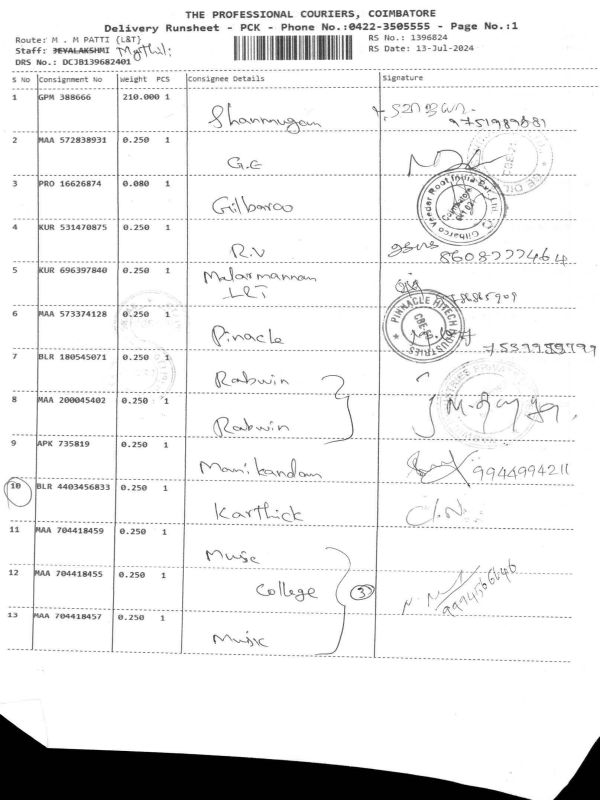 THE PROFESSIONAL COURIERS, COIMBATORE
Delivery Runsheet - PCK - Phone No.:0422-3505555 - Page No.:1
Route: M . M PATTI {L&T}
RS No.: 1396824
Staff: JEYALAKSHMI Mythili
RS Date: 13-Jul-2024
DRS No.: DCJB139682401
S No Consignment No Weight PCS Consignee Details Signature
1 GPM 388666 210.000 1 Shanmugam
9751989881
2 MAA 572838931 0.250 1 G.E
3 PRO 16626874 0.080 1 Gilbarco
Gilbarco Veeder Root India Pvt. Ltd. Coimbatore
4 KUR 531470875 0.250 1 R.V 8608222464
5 KUR 696397840 0.250 1 Malarmannan
L&T
6 MAA 573374128 0.250 1 Pinacle
PINNACLE HITECH INDUSTRIES CBE
7 BLR 180545071 0.250 1 Rabwin
8 MAA 200045402 0.250 1 Rabwin
9 APK 735819 0.250 1 Manikandan 9944994211
10 BLR 4403456833 0.250 1 Karthick
11 MAA 704418459 0.250 1 Music
12 MAA 704418455 0.250 1 College 3
13 MAA 704418457 0.250 1 Music